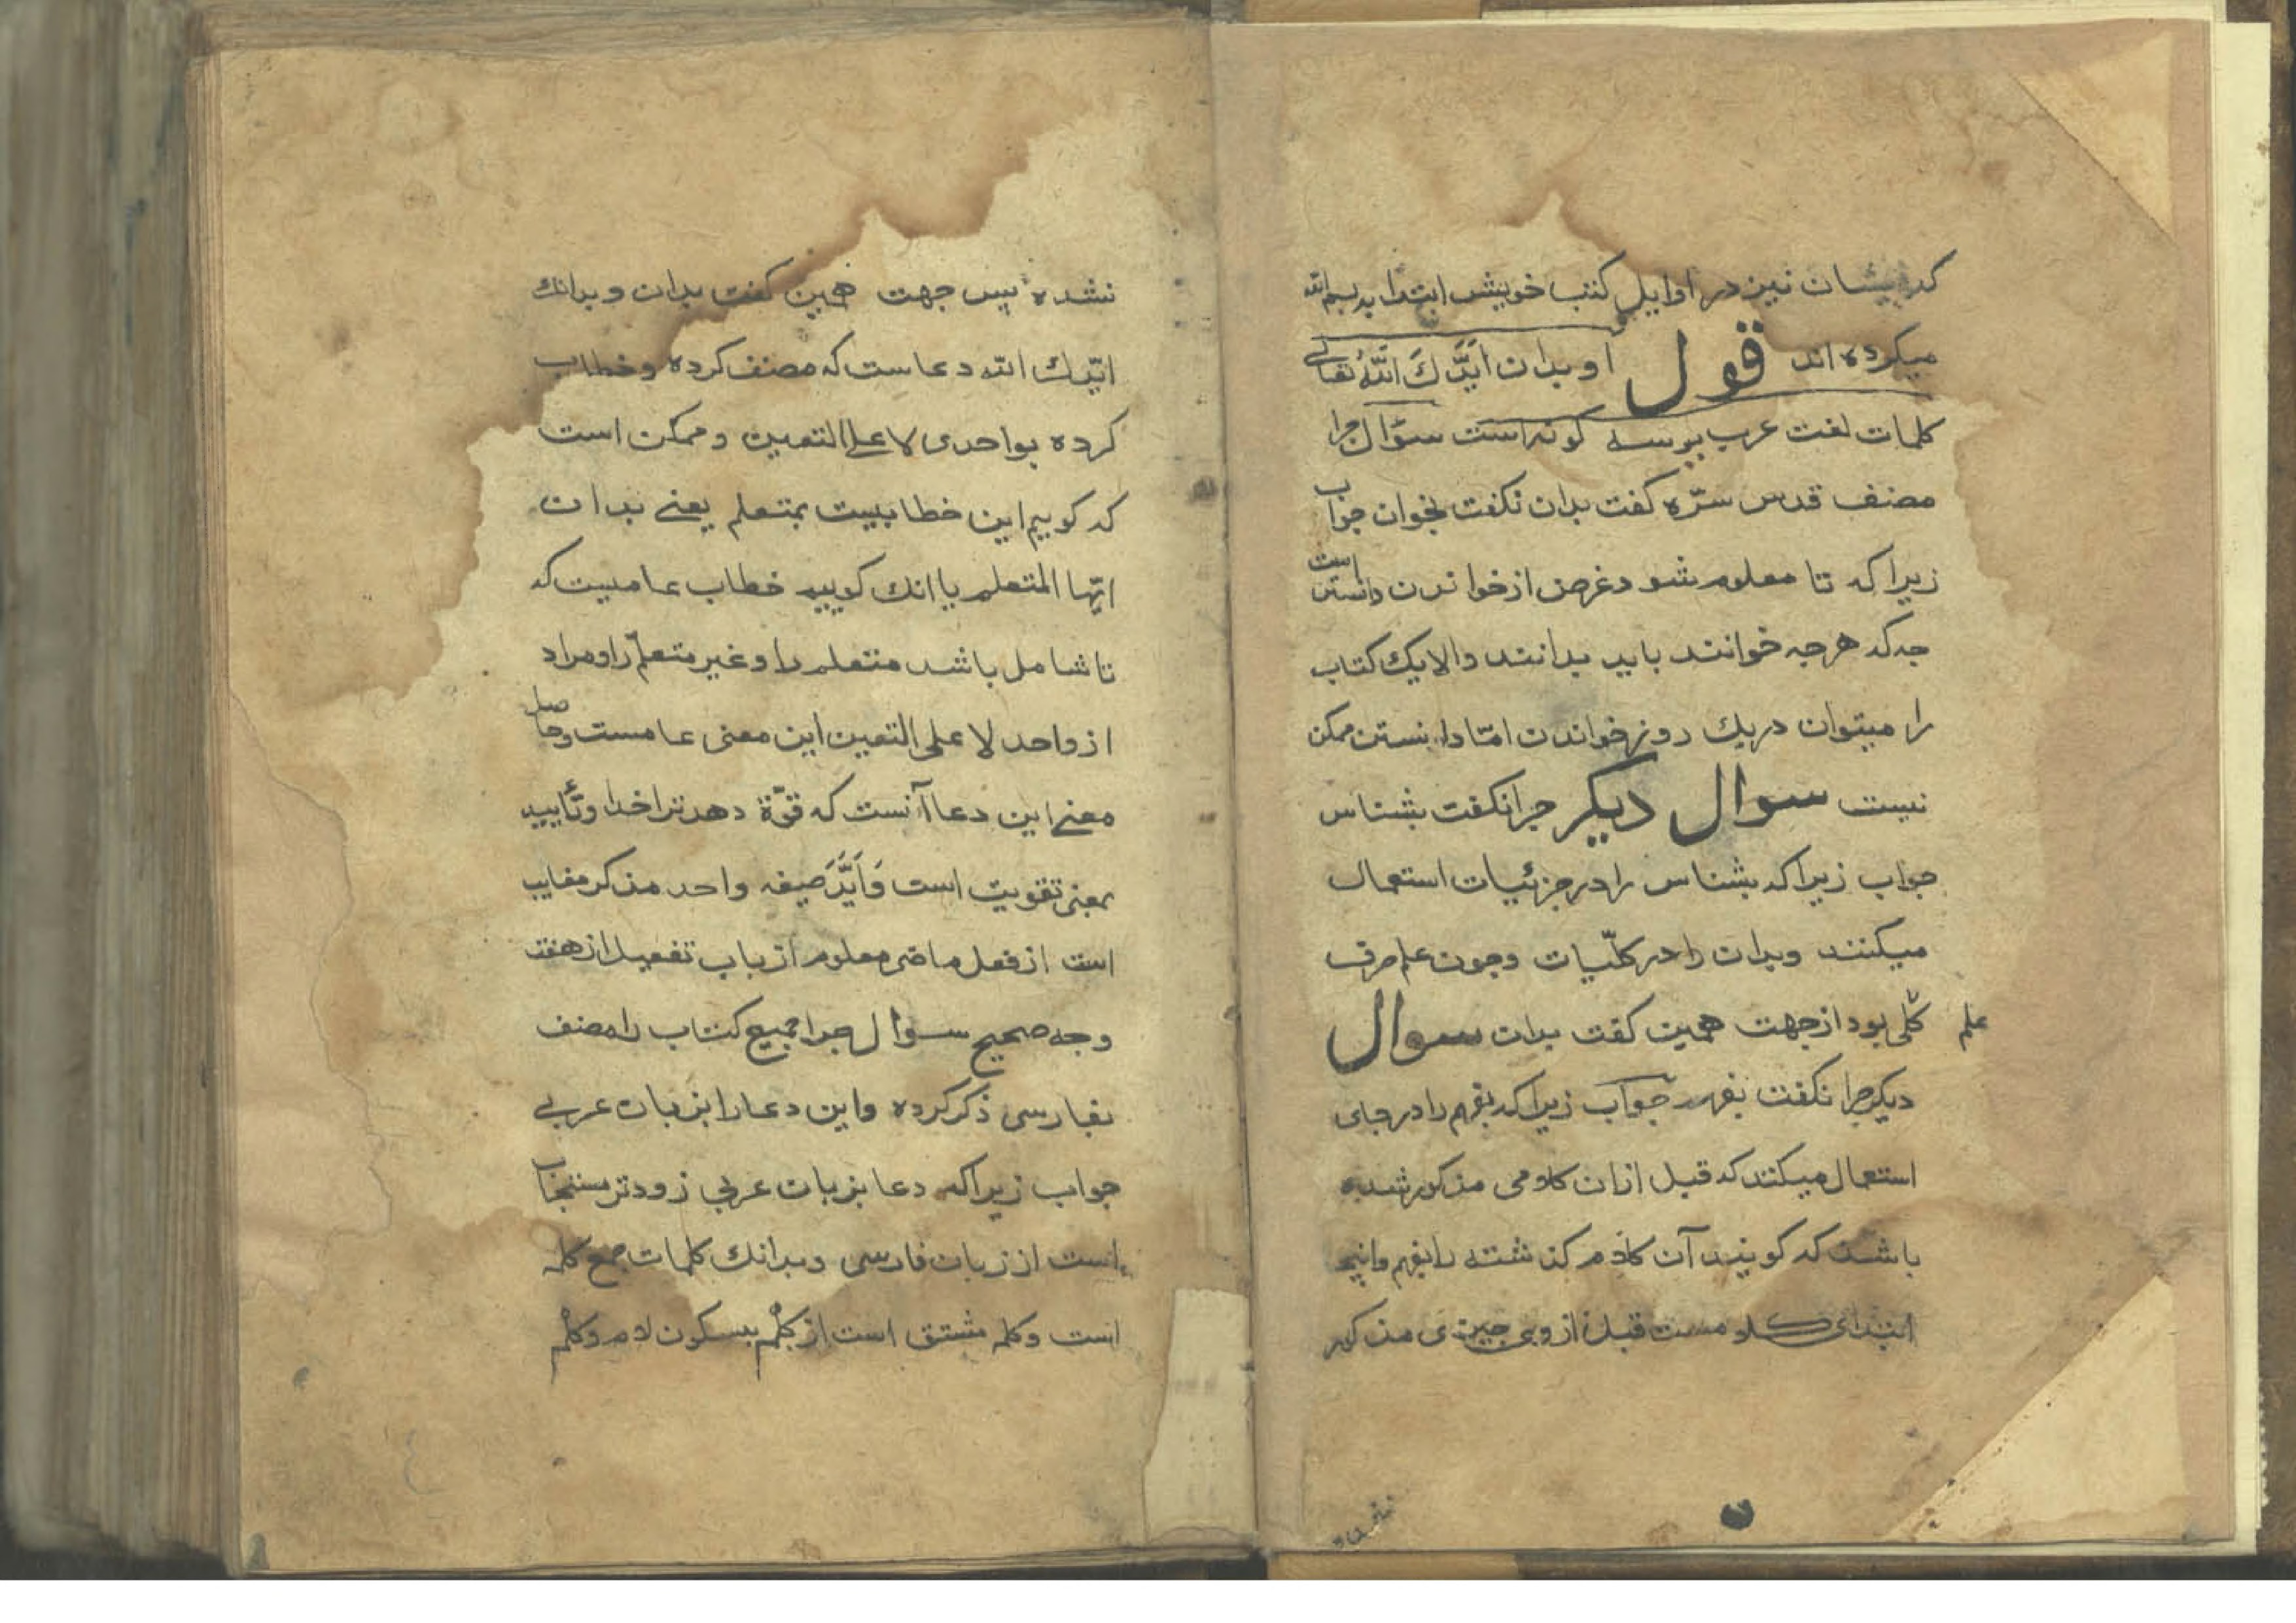 که ایشان نیز در اوایل کتب خویش ابتدا به بسم الله
میکرده اند قول او بدان اَیَّدَكَ اللّٰهُ تعالی
کلمات لغت عرب برسه کونه است سؤال جرا
مصنف قدس سرّه کفت بدان نکفت بخوان جواب
زیرا که تا معلوم شود غرض از خواندن دانستن است
جه که هرجه خوانند باید بدانند والا یک کتاب
را میتوان در یك روز خواندن امّا دانستن ممکن
نیست سوال دیکر جرا نکفت بشناس
جواب زیرا که بشناس را در جزئیات استعمال
میکنند وبدان را در کلّیات وجون علم صرف
علم کلی بود از جهت همین کفت بدان سوال
دیکر جرا نکفت بفهم جواب زیرا که بفهم را در جای
استعمال میکنند که قبل ازان کلامی مذکور شده
باشد که کویند آن کلام کذشته را بفهم واینجا
ابتدای کلامست قبل از وی جیزی مذکور
نشده پس جهت همین کفت بدان وبدانك
ایّدك الله دعاست که مصنف کرده وخطاب
کرده بواحدی لا علی التعیین وممکن است
که کوییم این خطابیست بمتعلم یعنی بدان
ایّها المتعلم یا انك کوییم خطاب عامیست که
تا شامل باشد متعلم را وغیر متعلّم را ومراد
از واحد لا علی التعین این معنی عامست وحاصل
معنی این دعا آنست که قوّة دهد ترا خدا وتأیید
بمعنی تقویت است وَاَیَّدَ صیغه واحد مذکر مغایب
است از فعل ماضی معلوم از باب تفعیل از هفت
وجه صحیح سوال جرا جمیع کتاب را مصنف
بفارسی ذکر کرده واین دعا را بزبان عربی
جواب زیرا که دعا بزبان عربی زودتر مستجاب
است از زبان فارسی وبدانك کلمات جمع کلمه
است وکلمه مشتق است از کَلْم بسکون لام وکَلْم